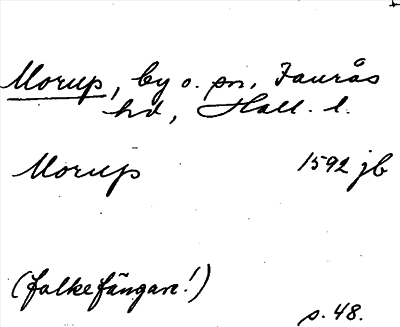 Morup, by o. sn, Faurås
hd, Hall. l.
Morup 1592 jb
(falkefångare!)
s. 48.